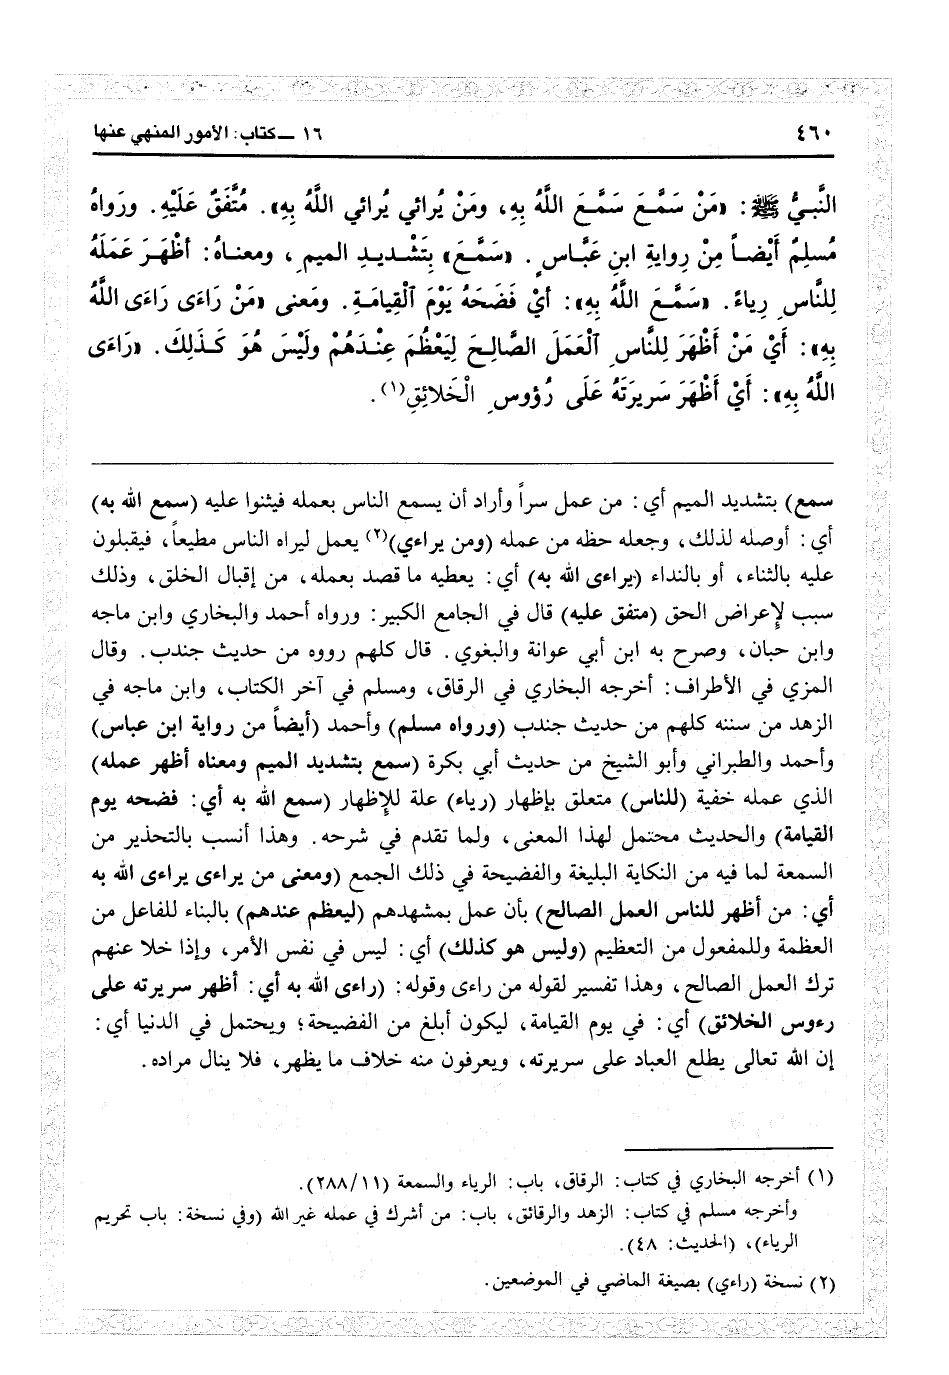 ٤٦٠
١٦ ـ كتاب: الأمور المنهي عنها
النَّبيُّ ﷺ: «مَنْ سَمَّعَ سَمَّعَ اللَّهُ بِهِ، ومَنْ يُرائي يُرائي اللَّهُ بِهِ». مُتَّفَقٌ عَلَيْهِ. ورَواهُ
مُسلِمٌ أَيْضاً مِنْ رِوايةِ ابنِ عَبَّاسٍ. «سَمَّعَ» بِتَشْديدِ الميمِ، ومعناهُ: أظْهَرَ عَمَلَهُ
لِلنَّاسِ رِياءً. «سَمَّعَ اللَّهُ بِهِ»: أيْ فَضَحَهُ يَوْمَ ٱلْقِيامَةِ. ومَعنى «مَنْ رَاءَى رَاءَى اللَّهُ
بِهِ»: أَيْ مَنْ أَظْهَرَ لِلنَّاسِ ٱلْعَمَلَ الصَّالِحَ لِيَعْظُمَ عِنْدَهُمْ ولَيْسَ هُوَ كَذَلِكَ. «رَاءَى
اللَّهُ بِهِ»: أَيْ أَظْهَرَ سَرِيرَتَهُ عَلَى رُؤوسِ الْخَلائِقِ(١).
سمع) بتشديد الميم أي: من عمل سراً وأراد أن يسمع الناس بعمله فيثنوا عليه (سمع الله به)
أي: أوصله لذلك، وجعله حظه من عمله (ومن يراءي)(٢) يعمل ليراه الناس مطيعاً، فيقبلون
عليه بالثناء، أو بالنداء (يراءى الله به) أي: يعطيه ما قصد بعمله، من إقبال الخلق، وذلك
سبب لإعراض الحق (متفق عليه) قال في الجامع الكبير: ورواه أحمد والبخاري وابن ماجه
وابن حبان، وصرح به ابن أبي عوانة والبغوي. قال كلهم رووه من حديث جندب. وقال
المزي في الأطراف: أخرجه البخاري في الرقاق، ومسلم في آخر الكتاب، وابن ماجه في
الزهد من سننه كلهم من حديث جندب (ورواه مسلم) وأحمد (أيضاً من رواية ابن عباس)
وأحمد والطبراني وأبو الشيخ من حديث أبي بكرة (سمع بتشديد الميم ومعناه أظهر عمله)
الذي عمله خفية (للناس) متعلق بإظهار (رياء) علة للإظهار (سمع الله به أي: فضحه يوم
القيامة) والحديث محتمل لهذا المعنى، ولما تقدم في شرحه. وهذا أنسب بالتحذير من
السمعة لما فيه من النكاية البليغة والفضيحة في ذلك الجمع (ومعنى من يراءى يراءى الله به
أي: من أظهر للناس العمل الصالح) بأن عمل بمشهدهم (ليعظم عندهم) بالبناء للفاعل من
العظمة وللمفعول من التعظيم (وليس هو كذلك) أي: ليس في نفس الأمر، وإذا خلا عنهم
ترك العمل الصالح، وهذا تفسير لقوله من راءى وقوله: (راءى الله به أي: أظهر سريرته على
رءوس الخلائق) أي: في يوم القيامة، ليكون أبلغ من الفضيحة؛ ويحتمل في الدنيا أي:
إن الله تعالى يطلع العباد على سريرته، ويعرفون منه خلاف ما يظهر، فلا ينال مراده.
(١) أخرجه البخاري في كتاب: الرقاق، باب: الرياء والسمعة (٢٨٨/١١).
وأخرجه مسلم في كتاب: الزهد والرقائق، باب: من أشرك في عمله غير الله (وفي نسخة: باب تحريم
الرياء)، (الحديث: ٤٨).
(٢) نسخة (راءي) بصيغة الماضي في الموضعين.